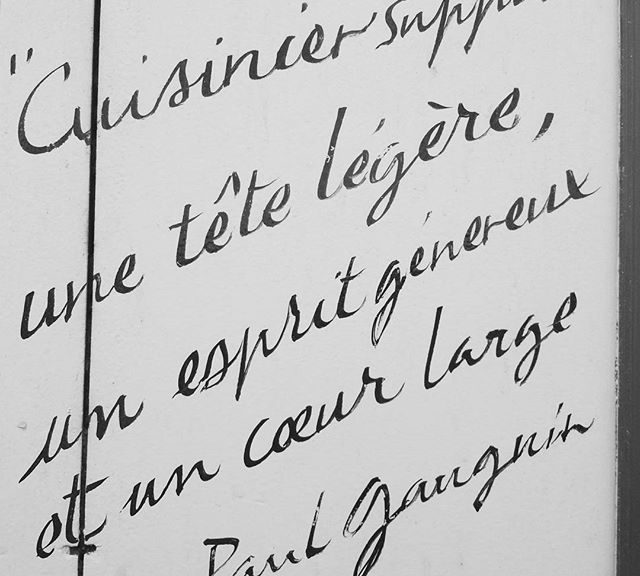 "Cuisinier
une tête légère,
un esprit génereux
et un cœur large
Paul Gauguin